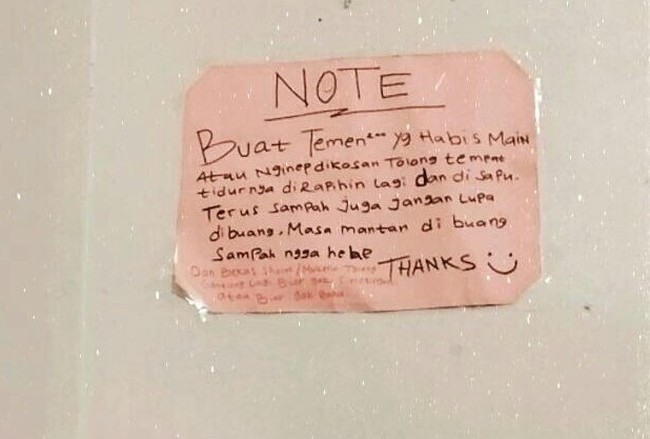 NOTE
Buat Temen² yg Habis Main
Atau Nginep dikosan Tolong tempat
tidurnya diRapihin lagi dan di sapu.
Terus sampah juga jangan Lupa
dibuang. Masa mantan di buang
Sampah ngga hehe
THANKS
Dan Bekas Sholat/Mukena Tolong
Lagi Biar gak
atau Biar Gak Bau